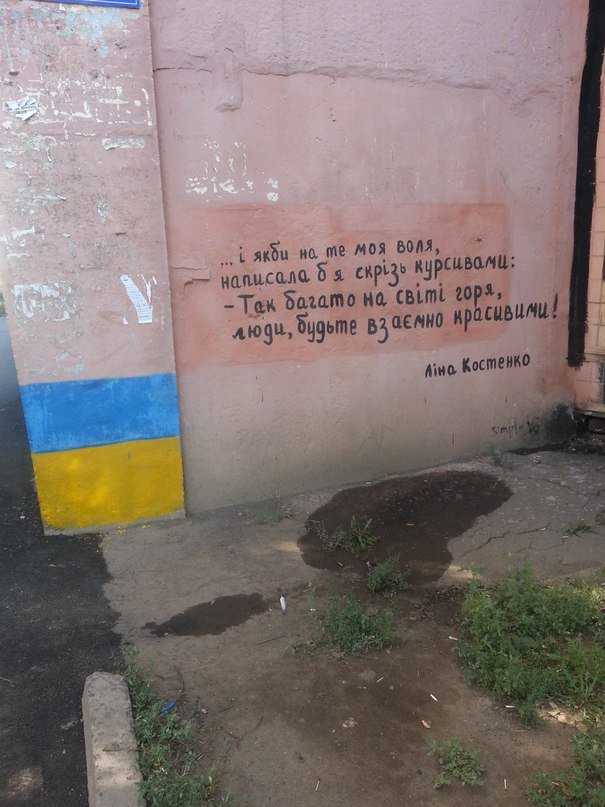 ... і якби на те моя воля,
написала б я скрізь курсивами:
– Так багато на світі горя,
люди, будьте взаємно красивими!
Ліна Костенко
simple